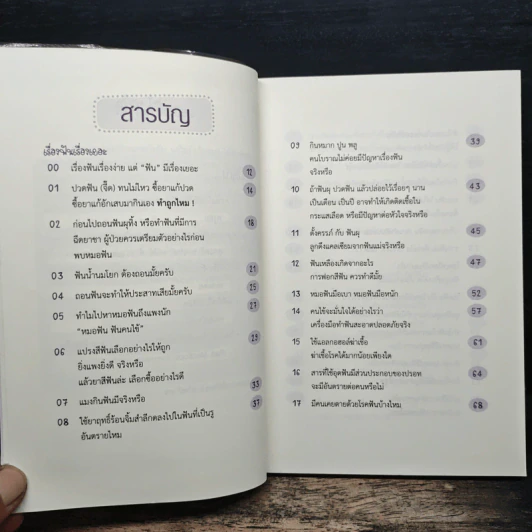 สารบัญ
เรื่องฟันเรื่องเยอะ
00 เรื่องฟันเรื่องง่าย แต่ "ฟัน" มีเรื่องเยอะ 12
01 ปวดฟัน (จี๊ด) ทนไม่ไหว ซื้อยาแก้ปวด 14
ซื้อยาแก้อักเสบมากินเอง ทำถูกไหม !
02 ก่อนไปถอนฟันผุทิ้ง หรือทำฟันที่มีการ 18
ฉีดยาชา ผู้ป่วยควรเตรียมตัวอย่างไรก่อน
พบหมอฟัน
03 ฟันน้ำนมโยก ต้องถอนมั้ยครับ 21
04 ถอนฟันจะทำให้ประสาทเสียมั้ยครับ 25
05 ทำไมไปหาหมอฟันถึงแพงนัก 27
"หมอฟัน ฟันคนไข้"
06 แปรงสีฟันเลือกอย่างไรให้ถูก 29
ยิ่งแพงยิ่งดี จริงหรือ
แล้วยาสีฟันล่ะ เลือกซื้ออย่างไรดี
07 แมงกินฟันมีจริงหรือ 33
08 ใช้ยาฤทธิ์ร้อนจิ้มสำลีกดลงไปในฟันที่เป็นรู 37
อันตรายไหม
09 กินหมาก ปูน พลู 39
คนโบราณไม่ค่อยมีปัญหาเรื่องฟัน
จริงหรือ
10 ถ้าฟันผุ ปวดฟัน แล้วปล่อยไว้เรื่อยๆ นาน 43
เป็นเดือน เป็นปี อาจทำให้เกิดติดเชื้อใน
กระแสเลือด หรือมีปัญหาต่อหัวใจจริงหรือ
11 ตั้งครรภ์ กับ ฟันผุ 45
ลูกดึงแคลเซียมจากฟันแม่จริงหรือ
12 ฟันเหลืองเกิดจากอะไร 47
การฟอกสีฟัน ควรทำดีมั้ย
13 หมอฟันมือเบา หมอฟันมือหนัก 52
14 คนไข้จะมั่นใจได้อย่างไรว่า 57
เครื่องมือทำฟันสะอาดปลอดภัยจริง
15 ใช้แอลกอฮอล์ฆ่าเชื้อ 61
ฆ่าเชื้อโรคได้มากน้อยเพียงใด
16 สารที่ใช้อุดฟันมีส่วนประกอบของปรอท 64
จะมีอันตรายต่อคนหรือไม่
17 มีคนเคยตายด้วยโรคฟันบ้างไหม 68